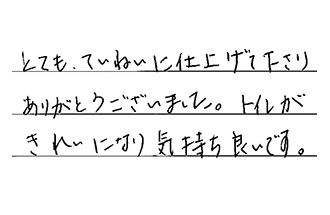 とても、ていねいに仕上げて下さり
ありがとうございました。トイレが
きれいになり気持ち良いです。